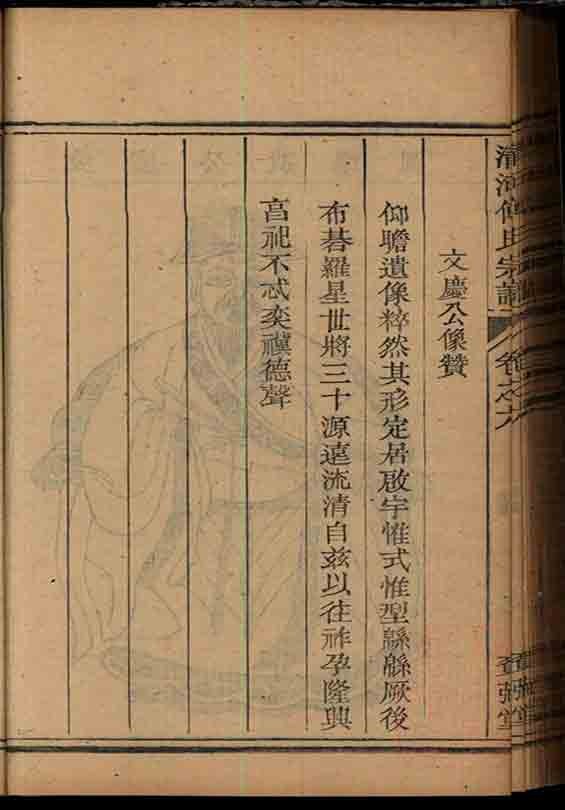 氏宗譜 卷之
文慶公像贊
仰瞻遺像粹然其形定居啟宇惟式惟型緜緜厥後
布碁羅星世將三十源遠流清自茲以往祚孕隆興
亯祀不忒奕禩德聲